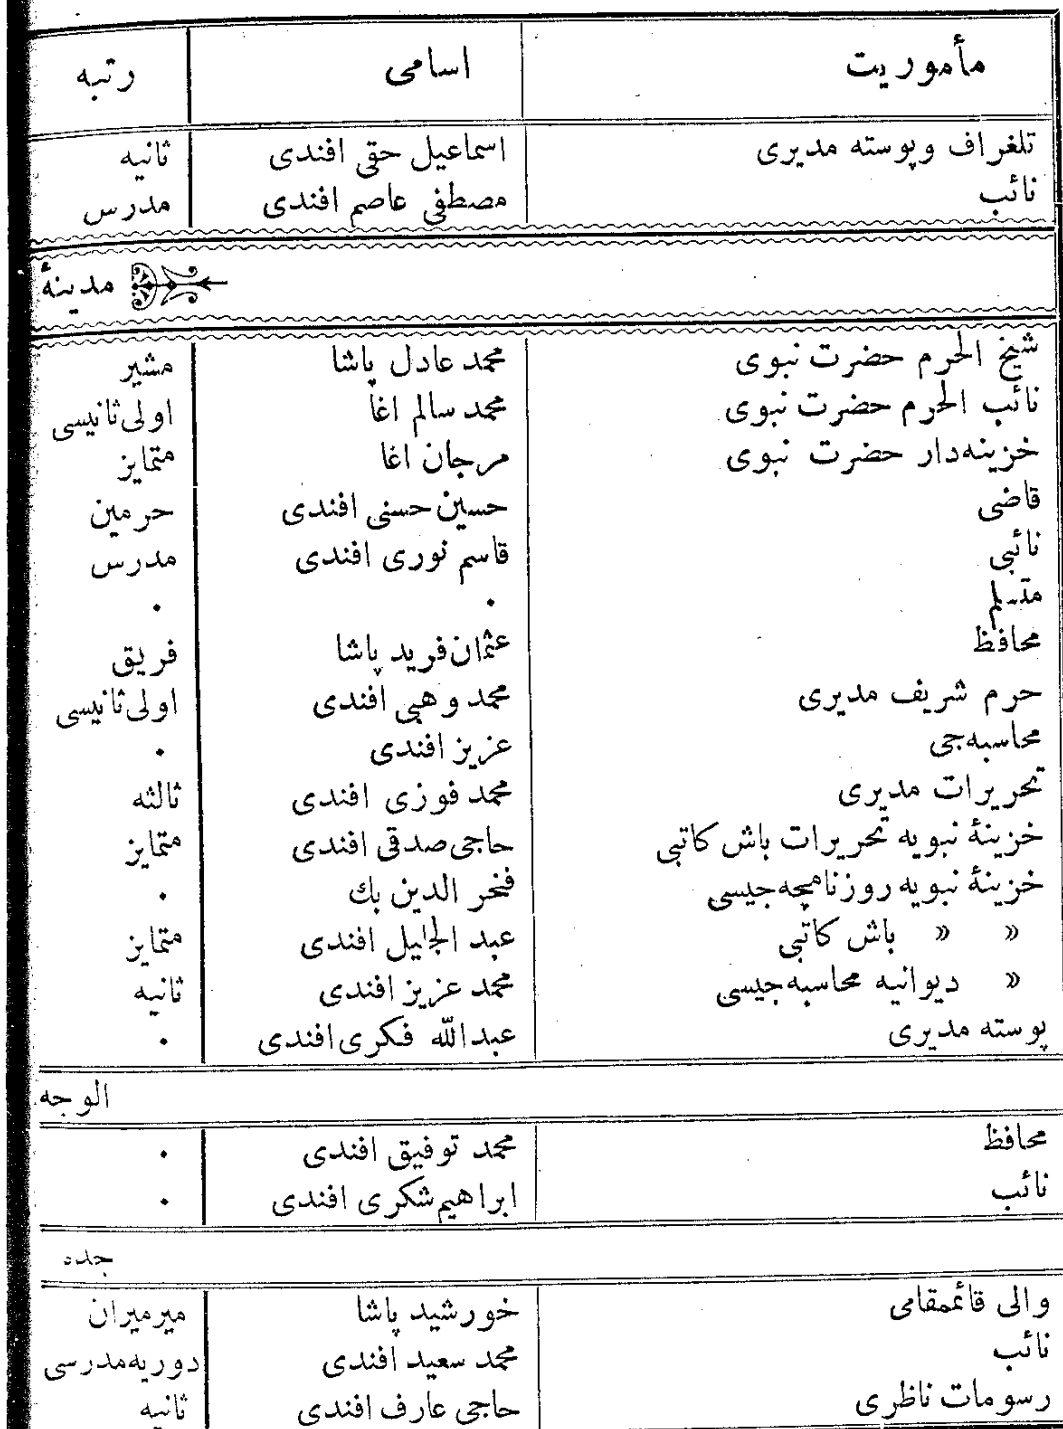 مأموریت اسامی رتبه
تلغراف وپوسته مدیری اسماعیل حقی افندی ثانیه
نائب مصطفی عاصم افندی مدرس
مدینهٔ
شیخ الحرم حضرت نبوی محمد عادل پاشا مشیر
نائب الحرم حضرت نبوی محمد سالم اغا اولی ثانیسی
خزینه‌دار حضرت نبوی مرجان اغا متمایز
قاضی حسین حسنی افندی حرمین
نائبی قاسم نوری افندی مدرس
متسلم ٠ ٠
محافظ عثمان فرید پاشا فریق
حرم شریف مدیری محمد وهبی افندی اولی ثانیسی
محاسبه‌جی عزیز افندی ٠
تحریرات مدیری محمد فوزی افندی ثالثه
خزینهٔ نبویه تحریرات باش کاتبی حاجی صدقی افندی متمایز
خزینهٔ نبویه روزنامچه‌جیسی فخر الدین بك ٠
« « باش کاتبی عبد الجلیل افندی متمایز
« دیوانیه محاسبه‌جیسی محمد عزیز افندی ثانیه
پوسته مدیری عبدالله فکری افندی ٠
الوجه
محافظ محمد توفیق افندی ٠
نائب ابراهیم شکری افندی ٠
جده
والی قائممقامی خورشید پاشا میرمیران
نائب محمد سعید افندی دوریه‌مدرسی
رسومات ناظری حاجی عارف افندی ثانیه